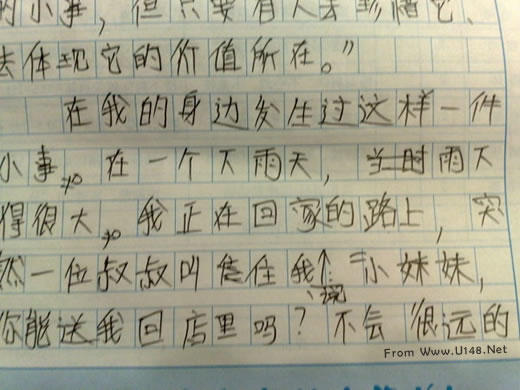 的小事，但只要有人去珍惜它、
去体现它的价值所在。”
在我的身边发生过这样一件
小事。在一个下雨天，当时雨下
得很大。我正在回家的路上，突
然一位叔叔叫住我说：“小妹妹，
你能送我回店里吗？不会很远的
From Www.U148.Net